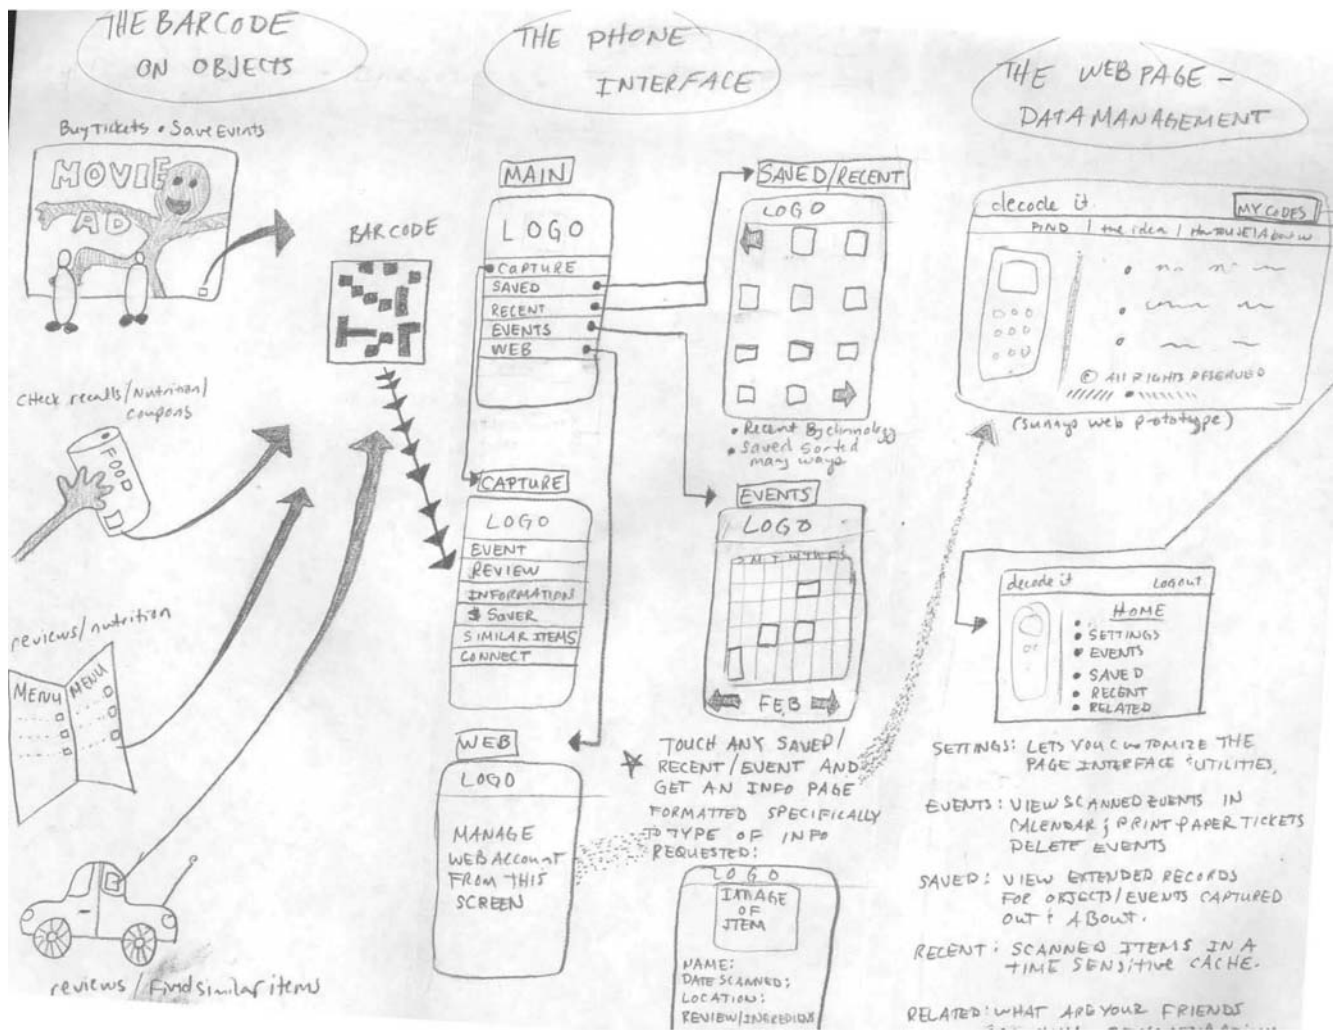 THE BARCODE
ON OBJECTS
Buy Tickets • Save Events
MOVIE
AD
BARCODE
Check recalls/Nutrition/
coupons
FOOD
reviews/nutrition
MENU
MENU
reviews / Find similar items
THE PHONE
INTERFACE
MAIN
LOGO
CAPTURE
SAVED
RECENT
EVENTS
WEB
CAPTURE
LOGO
EVENT
REVIEW
INFORMATION
$ SAVER
SIMILAR ITEMS
CONNECT
WEB
LOGO
MANAGE
WEB ACCOUNT
FROM THIS
SCREEN
SAVED/RECENT
LOGO
• Recent By chronology
• Saved Sorted
many ways
EVENTS
LOGO
S M T W TH F S
FEB
TOUCH ANY SAVED/
RECENT/EVENT AND
GET AN INFO PAGE
FORMATTED SPECIFICALLY
TO TYPE OF INFO
REQUESTED:
LOGO
IMAGE
OF
ITEM
NAME:
DATE SCANNED:
LOCATION:
REVIEW/INGREDIENTS
THE WEB PAGE -
DATA MANAGEMENT
decode it
MY CODES
FIND | the idea |
© All RIGHTS RESERVED
(sunnys web prototype)
decode it LOGOUT
HOME
• SETTINGS
• EVENTS
• SAVED
• RECENT
• RELATED
SETTINGS: LETS YOU CUSTOMIZE THE
PAGE INTERFACE & UTILITIES.
EVENTS: VIEW SCANNED EVENTS IN
CALENDAR; PRINT PAPER TICKETS
DELETE EVENTS
SAVED: VIEW EXTENDED RECORDS
FOR OBJECTS/EVENTS CAPTURED
OUT & ABOUT.
RECENT: SCANNED ITEMS IN A
TIME SENSITIVE CACHE.
RELATED: WHAT ARE YOUR FRIENDS